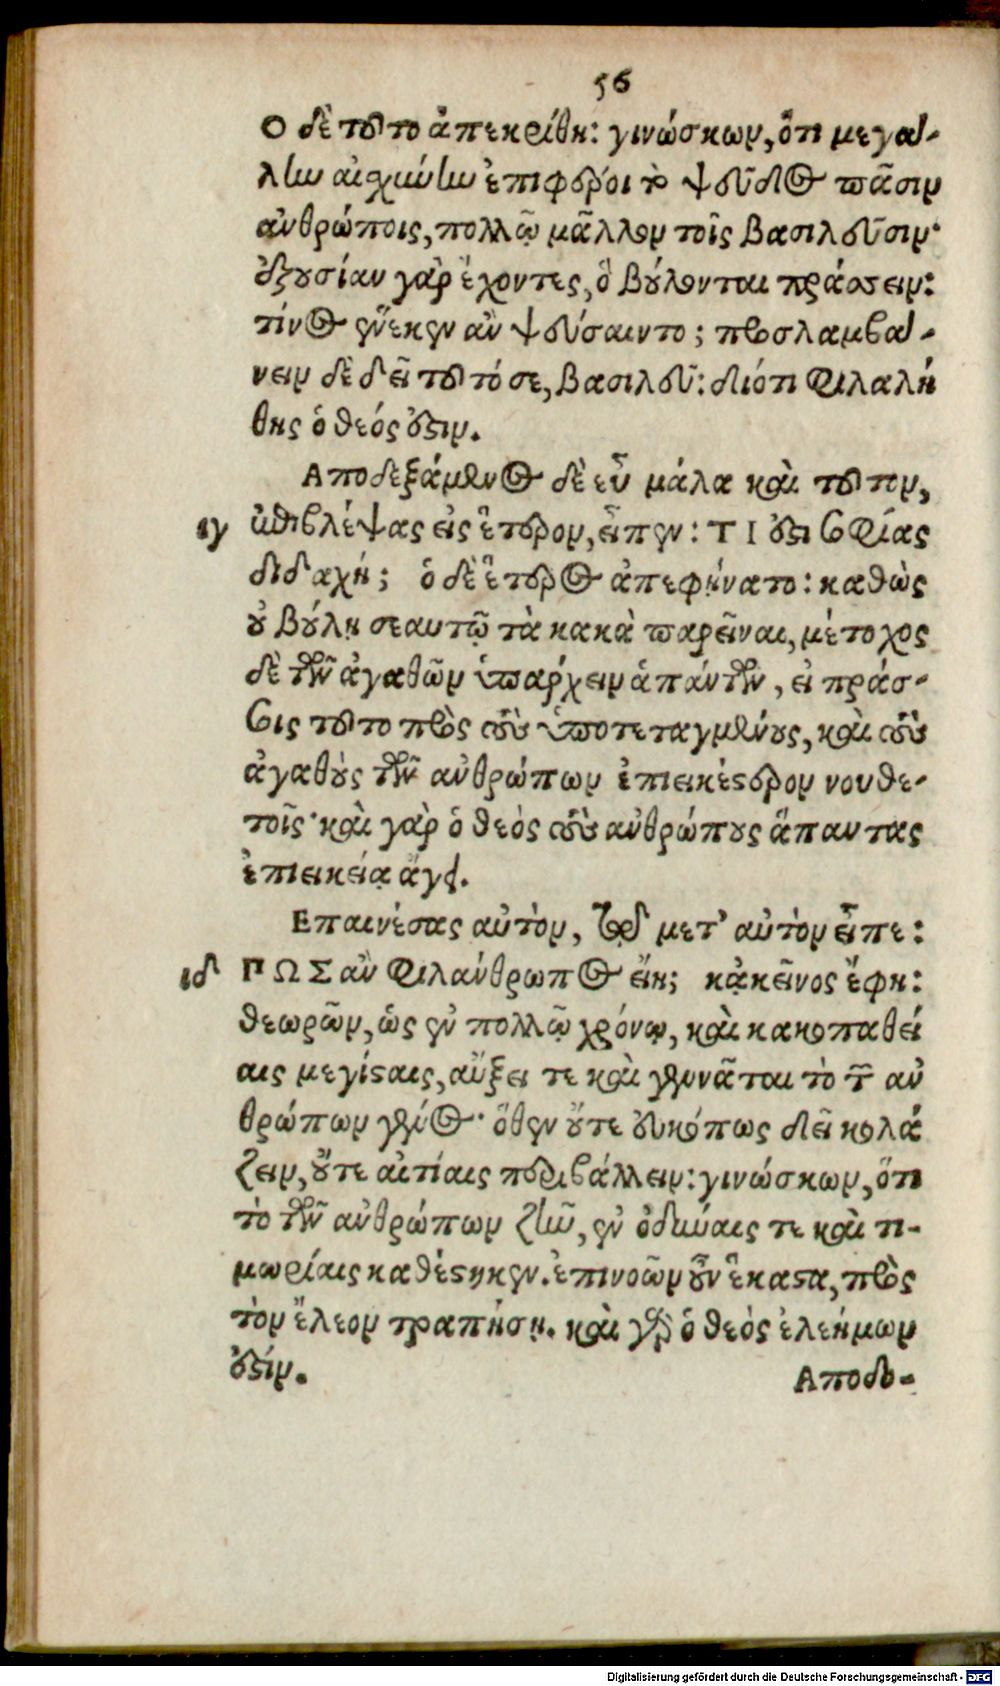 56
Ο δὲ τοῦτο ἀπεκρίθη: γινώσκων, ὅτι μεγά-
λην αἰσχύνην ἐπιφέρει τὸ ψεῦδος πᾶσιν
ἀνθρώποις, πολλῷ μᾶλλον τοῖς βασιλεῦσιν·
ἐξουσίαν γὰρ ἔχοντες, ὃ βούλονται πράσσειν:
τίνος ἕνεκεν ἂν ψεύσαιντο; προσλαμβά-
νειν δὲ δεῖ τοῦτό σε, βασιλεῦ: διότι φιλαλή
θης ὁ θεός ἐστιν.
Αποδεξάμενος δὲ εὖ μάλα καὶ τοῦτον,
ιγ ἐπιβλέψας εἰς ἕτερον, εἶπεν: ΤΙ ἐστι σοφίας
διδαχή; ὁ δὲ ἕτερος ἀπεφήνατο: καθὼς
οὐ βούλῃ σεαυτῷ τὰ κακὰ παρεῖναι, μέτοχος
δὲ τῶν ἀγαθῶν ὑπάρχειν ἁπάντων, εἰ πράσ-
σοις τοῦτο πρὸς τοὺς ὑποτεταγμένους, καὶ τοὺς
ἀγαθοὺς τῶν ἀνθρώπων ἐπιεικέστερον νουθε-
τοῖς· καὶ γὰρ ὁ θεὸς τοὺς ἀνθρώπους ἅπαντας
ἐπιεικείᾳ ἄγει.
Επαινέσας αὐτὸν, τῷ μετ’ αὐτὸν εἶπε:
ιδ ΠΩΣ ἂν φιλάνθρωπος εἴη; κἀκεῖνος ἔφη:
θεωρῶν, ὡς ἐν πολλῷ χρόνῳ, καὶ κακοπαθεί
αις μεγίσταις, αὔξει τε καὶ γεννᾶται τὸ τῶν ἀν
θρώπων γένος· ὅθεν οὔτε εὐκόπως δεῖ κολά
ζειν, οὔτε αἰτίαις περιβάλλειν: γινώσκων, ὅτι
τὸ τῶν ἀνθρώπων ζῆν, ἐν ὀδύναις τε καὶ τι-
μωρίαις καθέστηκεν. ἐπινοῶν οὖν ἕκαστα, πρὸς
τὸν ἔλεον τραπήσῃ. καὶ γὰρ ὁ θεὸς ἐλεήμων
ἐστίν. Αποδε-
Digitalisierung gefördert durch die Deutsche Forschungsgemeinschaft - DFG